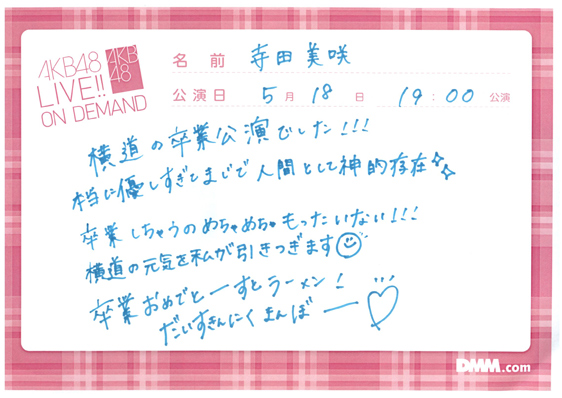 AKB48
LIVE!!
ON DEMAND
AKB
48
名前 寺田美咲
公演日 5月18日 19:00公演
横道の卒業公演でした!!!
本当に優しすぎてまじで人間として神的存在
卒業しちゃうのめちゃめちゃもったいない!!!
横道の元気を私が引きつぎます
卒業おめでとーすとラーメン!
だいすきんにくまんぼー
DMM.com